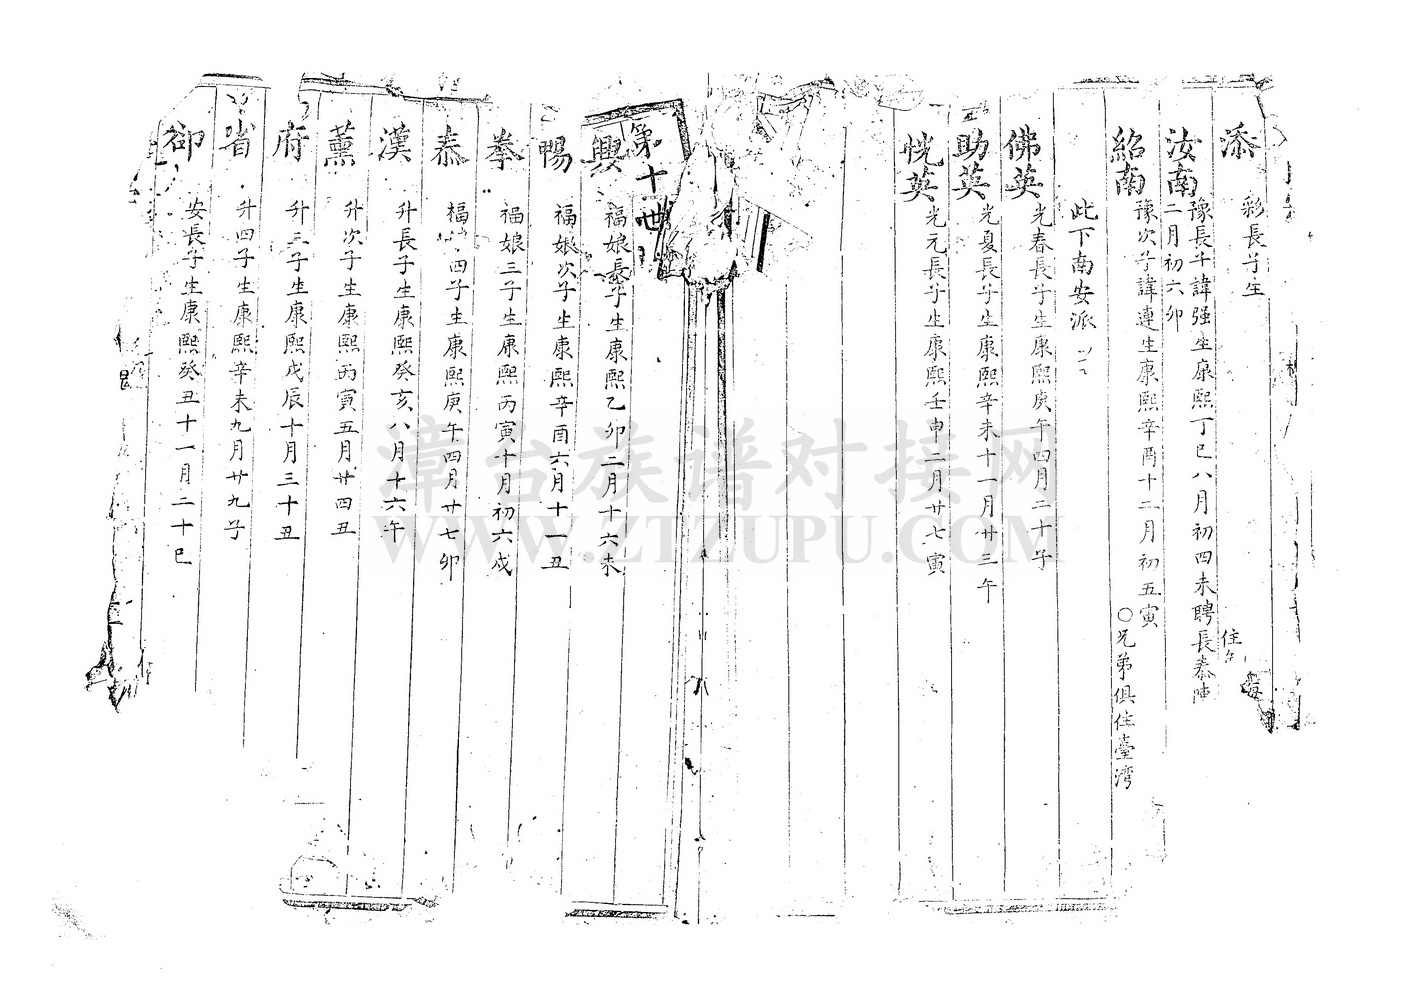 添
彩長子生
住
汝南
豫長子諱强生康熙丁巳八月初四未聘長泰陳
二月初六卯
紹南
豫次子諱連生康熙辛酉十二月初五寅
○兄弟俱住臺灣
此下南安派
佛英
光春長子生康熙庚午四月二十子
助英
光夏長子生康熙辛未十一月廿三午
恍英
光元長子生康熙壬申二月廿七寅
第十世
興
福娘長子生康熙乙卯二月十六未
暢
福娘次子生康熙辛酉六月十一丑
拳
福娘三子生康熙丙寅十月初六戌
泰
福 四子生康熙庚午四月廿七卯
漢
升長子生康熙癸亥八月十六午
薰
升次子生康熙丙寅五月廿四丑
府
升三子生康熙戊辰十月三十丑
省
升四子生康熙辛未九月廿九子
卻
安長子生康熙癸丑十一月二十巳
漳台族谱对接网
WWW.ZTZUPU.COM